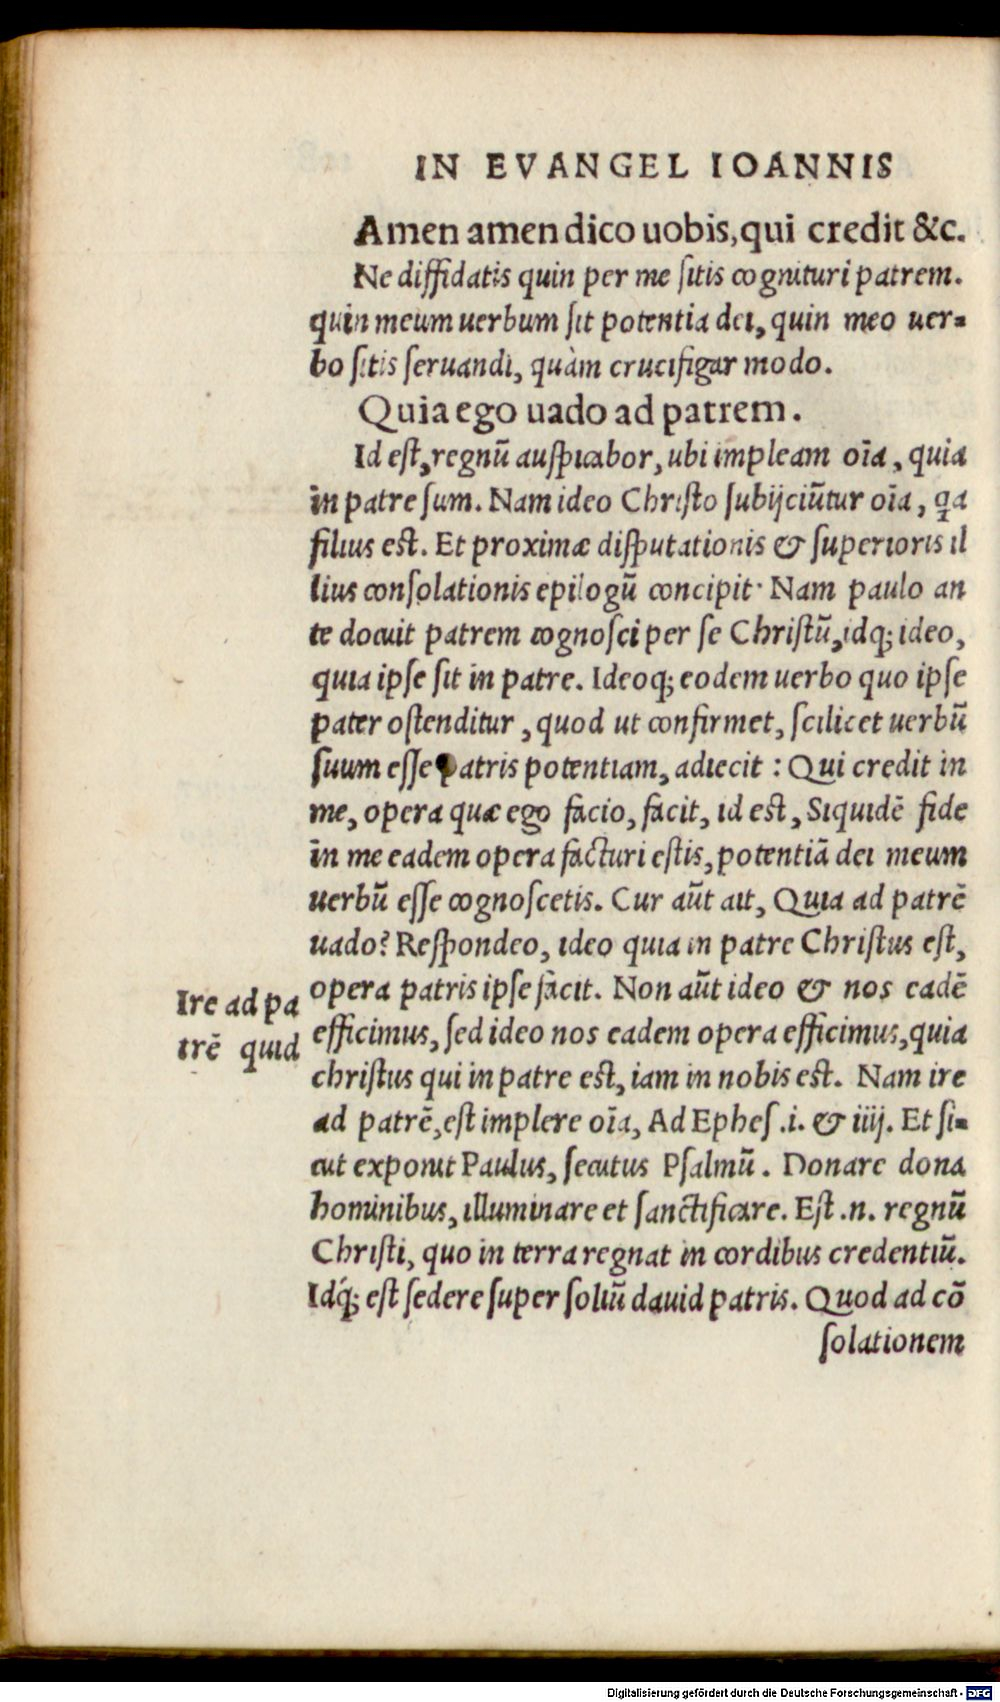 IN EVANGEL IOANNIS
Amen amen dico uobis, qui credit &c.
Ne diffidatis quin per me ſitis cognituri patrem.
quin meum uerbum ſit potentia dei, quin meo uer-
bo ſitis ſeruandi, quàm crucifigar modo.
Quia ego uado ad patrem.
Id eſt, regnũ auſpicabor, ubi impleam oĩa, quia
in patre ſum. Nam ideo Chriſto ſubijciũtur oĩa, ꝗa
filius eſt. Et proximæ diſputationis & ſuperioris il
lius conſolationis epilogũ concipit. Nam paulo an
te docuit patrem cognoſci per ſe Chriſtũ, idq; ideo,
quia ipſe ſit in patre. Ideoq; eodem uerbo quo ipſe
pater oſtenditur, quod ut confirmet, ſcilicet uerbũ
ſuum eſſe patris potentiam, adiecit : Qui credit in
me, opera quæ ego facio, facit, id eſt, Siquidẽ fide
in me eadem opera facturi eſtis, potentiã dei meum
uerbũ eſſe cognoſcetis. Cur aũt ait, Quia ad patrẽ
uado? Reſpondeo, ideo quia in patre Chriſtus eſt,
opera patris ipſe facit. Non aũt ideo & nos eadẽ
efficimus, ſed ideo nos eadem opera efficimus, quia
chriſtus qui in patre eſt, iam in nobis eſt. Nam ire
ad patrẽ, eſt implere oĩa, Ad Epheſ .i. & iiij. Et ſi-
cut exponit Paulus, ſecutus Pſalmũ. Donare dona
hominibus, illuminare et ſanctificare. Eſt .n. regnũ
Chriſti, quo in terra regnat in cordibus credentiũ.
Idq́; eſt ſedere ſuper ſoliũ dauid patris. Quod ad cõ
ſolationem
Ire ad pa
trẽ quid
Digitalisierung gefördert durch die Deutsche Forschungsgemeinschaft - DFG